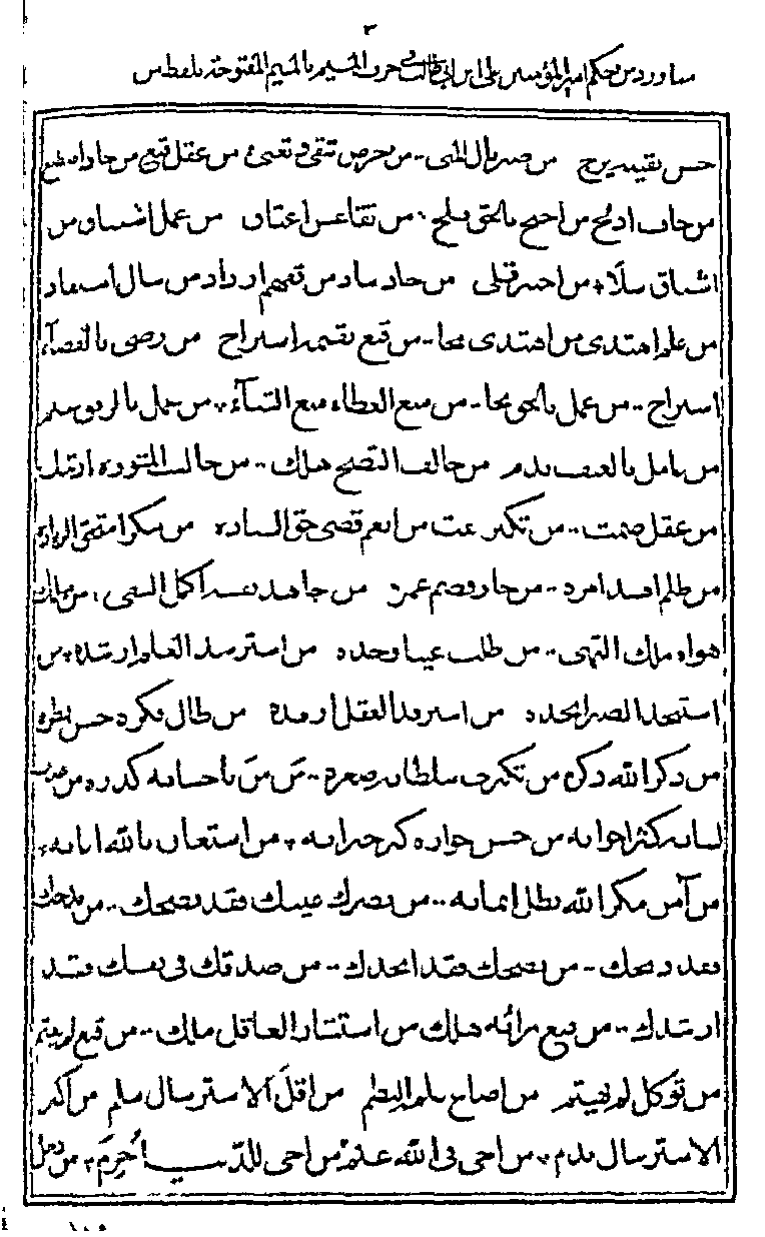 ٣
مما ورد من حكم امير المؤمنين علي ابن ابي طالب في حرف الميم بالميم المفتوحة بلفظ من
حسن يقينه يرج من صبر نال المنى من حرص شقي وتعنى من عقل قنع من جاد اصطنع
من خاف ادلج من احتج بالحق فلج من تقاعس اعتاق من عمل اشتاق من
اشتاق سلا من اختبر قلى من جاد ساد من تفهم ازداد من سال استفاد
من علم اهتدى من اهتدى نجا من قنع بقسمه استراح من رضي بالقضاء
استراح من عمل بالحق نجا من منع العطاء منع الثناء من عمل بالرفق غنم
من عامل بالعنف ندم من خالف النصح هلك من خالف المشورة ارتبك
من عقل صمت من تكبر مقت من انعم قضى حق السيادة من شكر استحق الزيادة
من ظلم افسد امره من جار قصم عمره من جاهد نفسه اكمل التقى من ملك
هواه ملك النهى من طلب عيبا وجده من استرشد العلم ارشده من
استنجد الصبر انجده من استرفد العقل ارفده من طال فكره حسن نظره
من ذكر الله ذكره من تكبر في سلطانه صغره من من باحسانه كدره من عذب
لسانه كثر اخوانه من حسن جواره كثر جيرانه من استعان بالله اعانه
من آمن مكر الله بطل ايمانه من بصرك عيبك فقد نصحك من مدحك
فقد ذبحك من نصحك فقد انجدك من صدقك في نفسك فقد
ارشدك من قنع برأيه هلك من استشار العاقل ملك من قنع لم يغتم
من توكل لم يهتم من اقل الاسترسال سلم من اكثر
الاسترسال ندم من اخى في الله غنم من اخى للدنيا حرم من